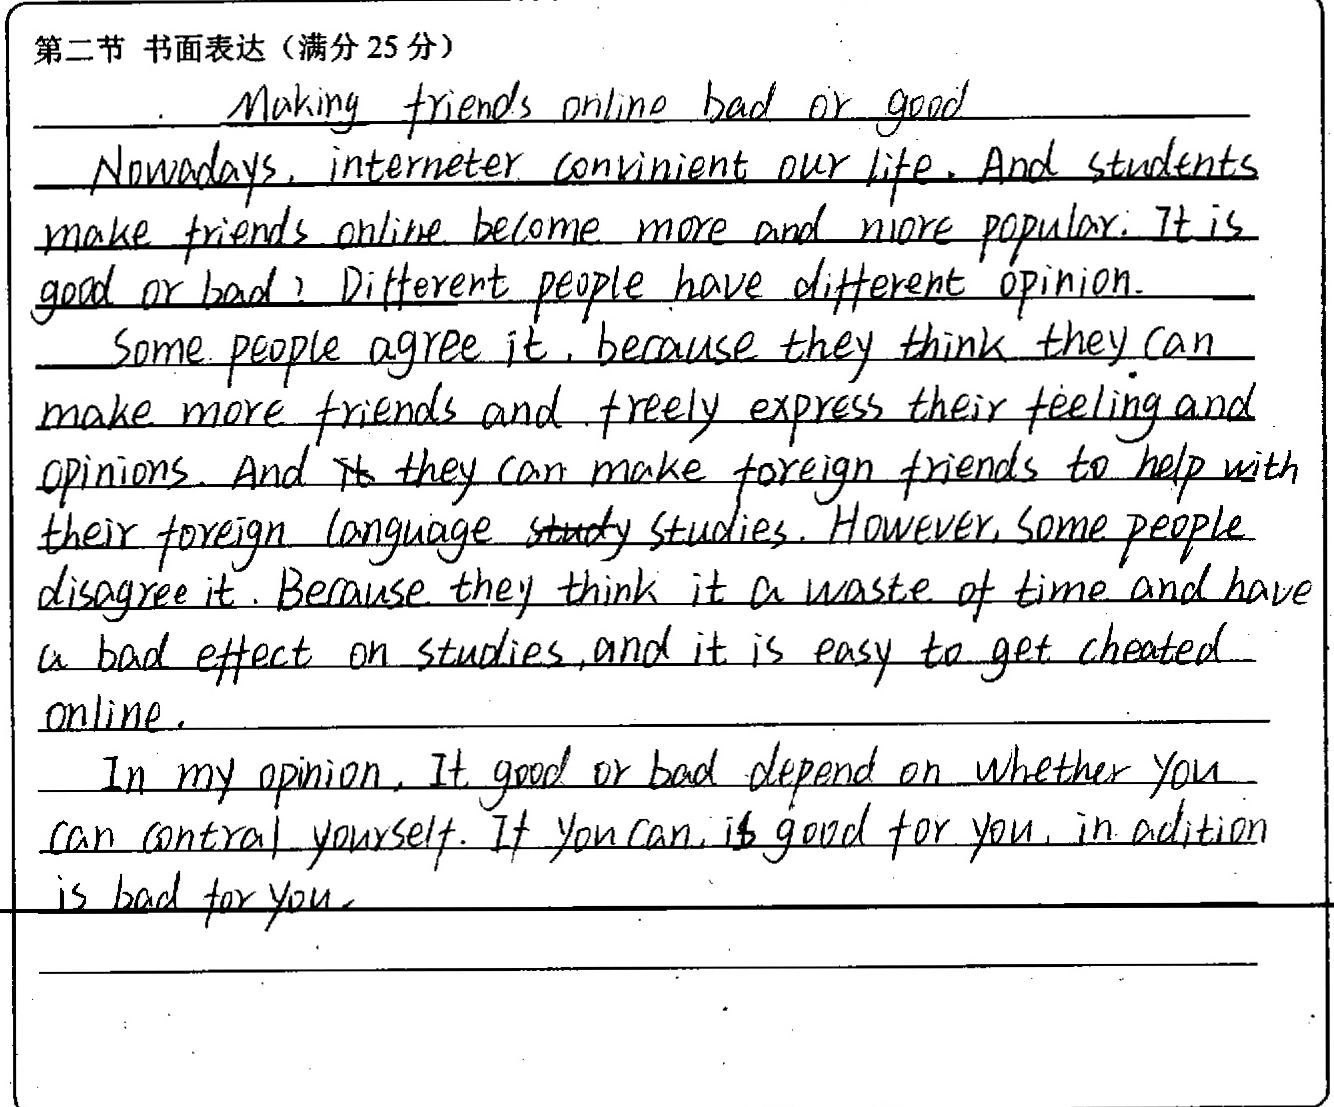 第二节 书面表达（满分 25 分）
Making friends online bad or good
Nowadays, interneter convinient our life. And students
make friends online become more and more popular. It is
good or bad? Different people have different opinion.
Some people agree it, because they think they can
make more friends and freely express their feeling and
opinions. And it they can make foreign friends to help with
their foreign language study studies. However, some people
disagree it. Because they think it a waste of time and have
a bad effect on studies, and it is easy to get cheated
online.
In my opinion, It good or bad depend on whether you
can contral yourself. If you can, is good for you, in adition
is bad for you.